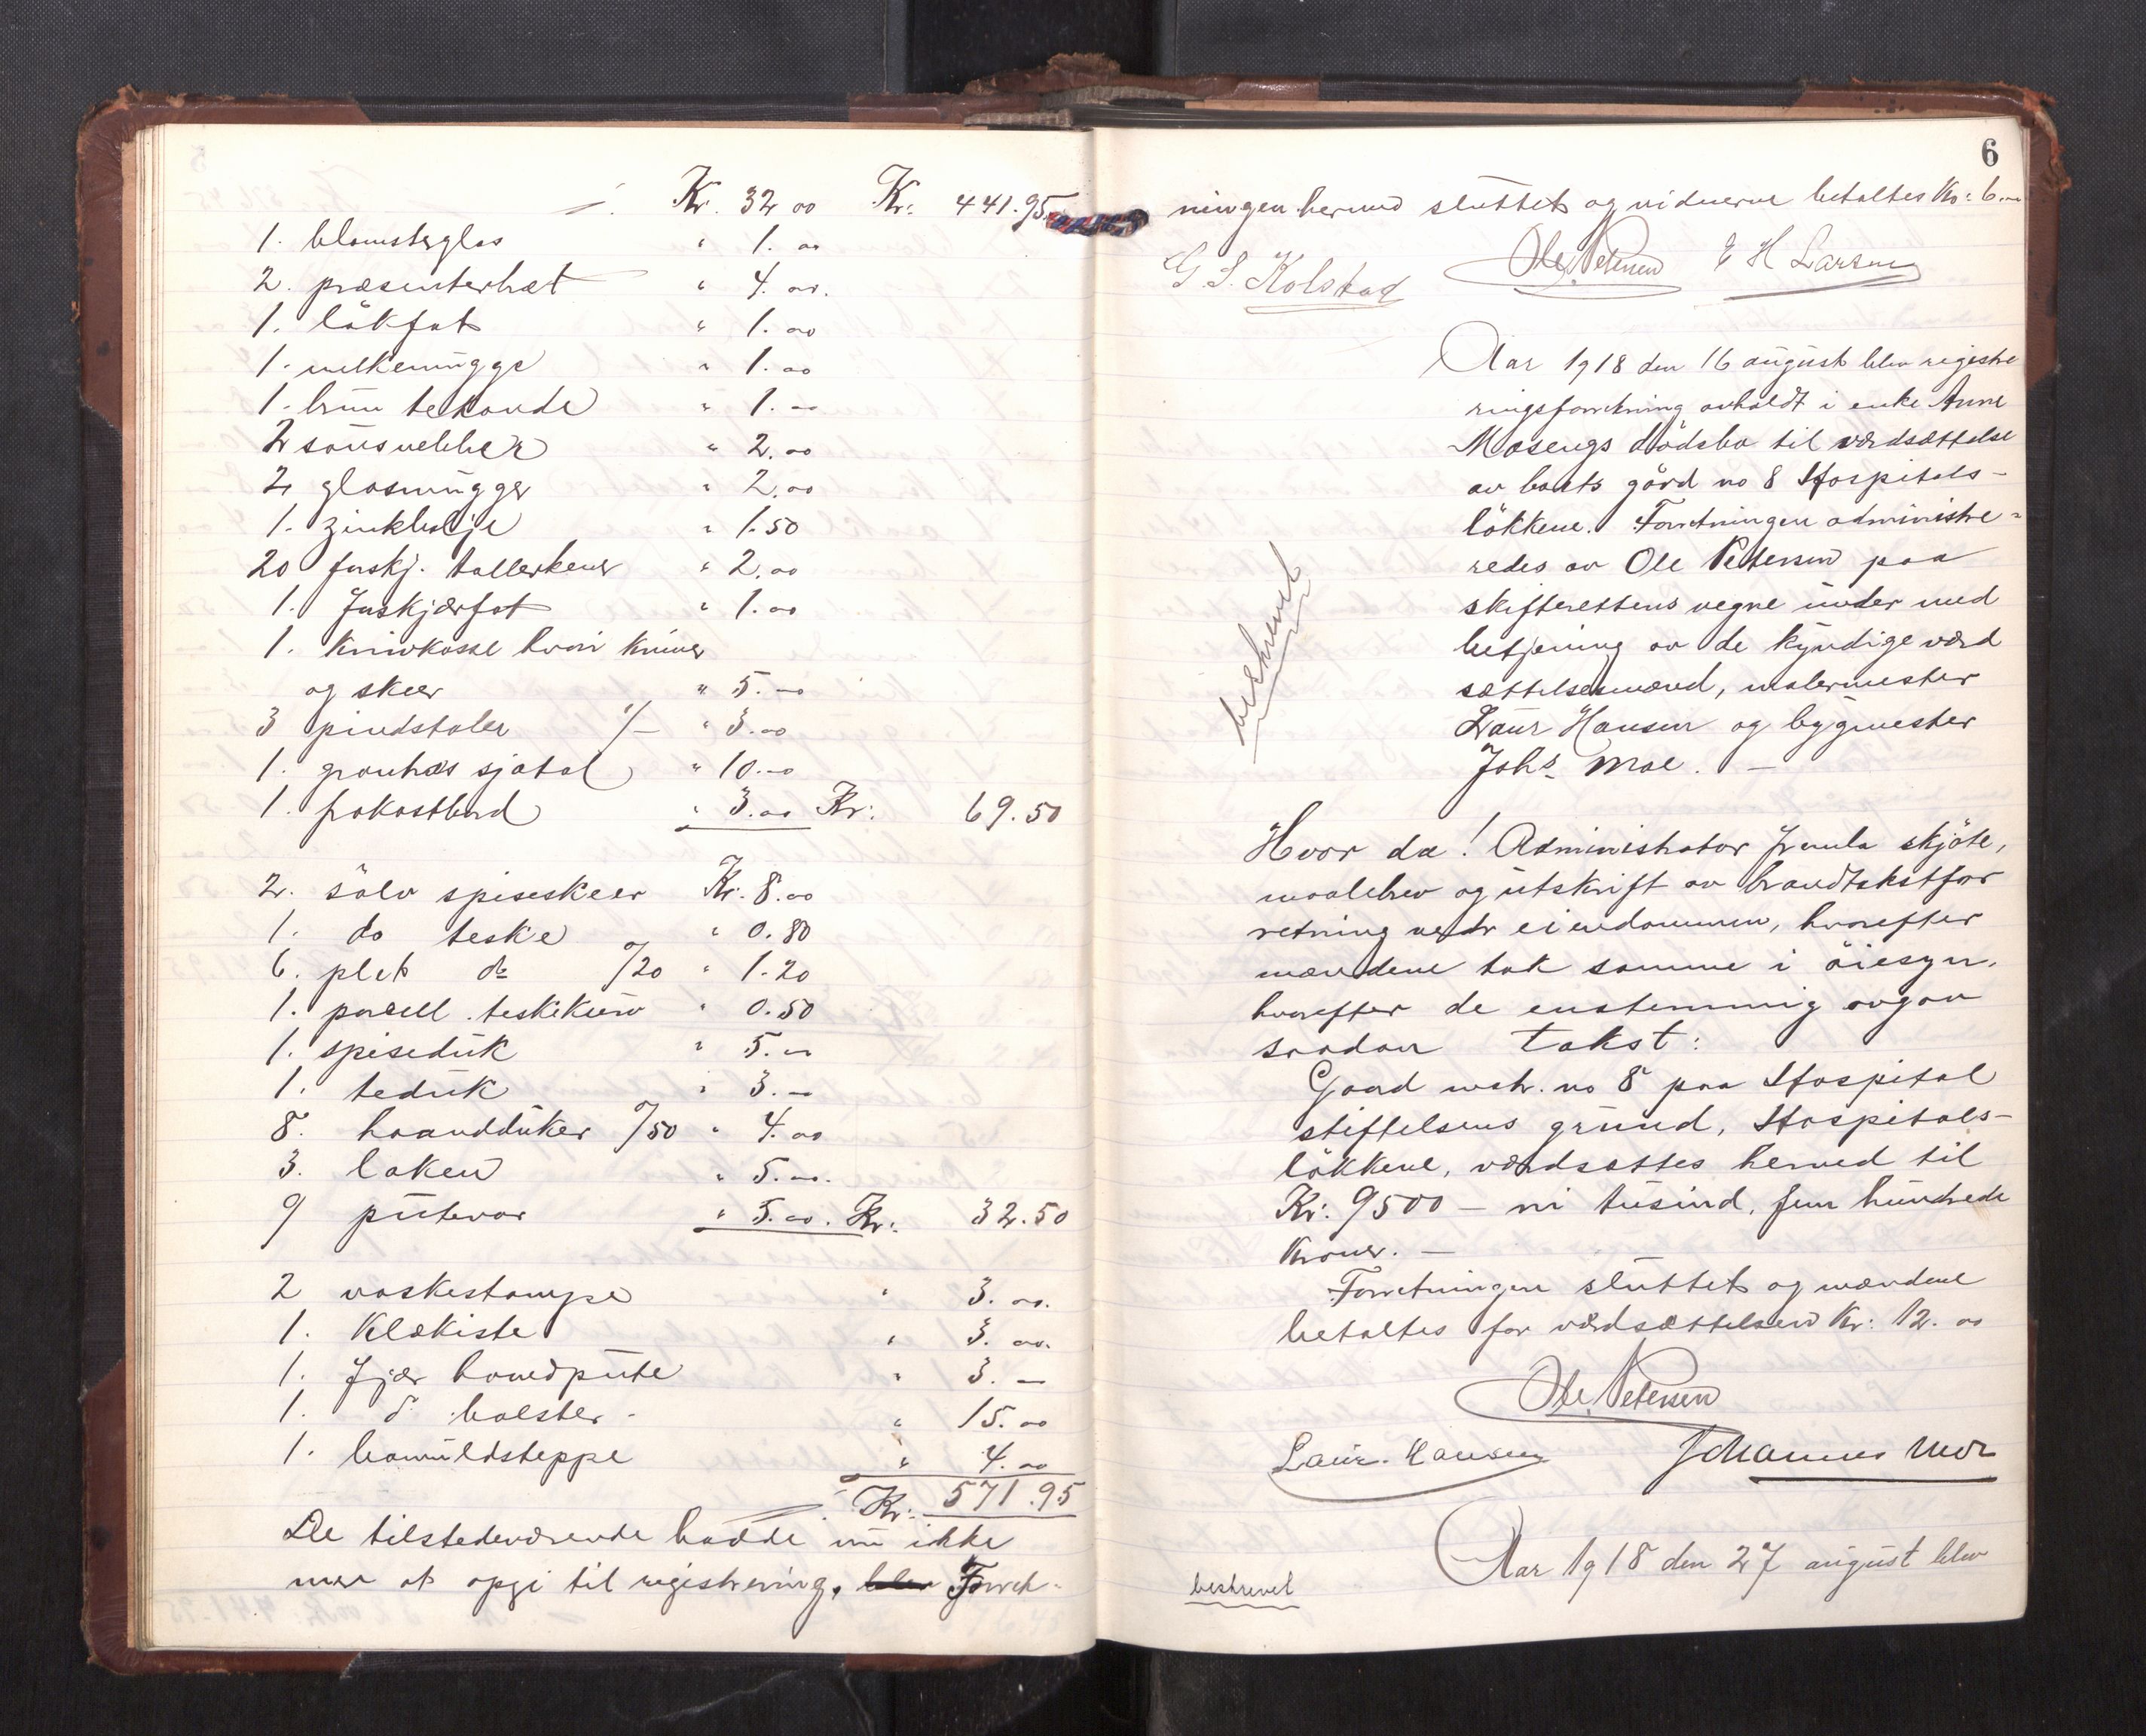 Kr. 32 00 Kr: 441.95
1. blomsterglas " 1. 00
2. præsenterbræt " 4. 00.
1. lökfat " 1. 00
1. melkemugge " 1. 00
1. brun tekande " 1. 00
2 sausnebber " 2. 00
2 glasmugger " 2. 00
1. zinkbalje " 1.50
20 forskj. tallerkener " 2. 00
1. forskjærfat " 1. 00
1. Knivkasse hvori Kniver
og skeer " 5. 00
3 pindstoler 1/- " 3. 00
1. sjatol " 10. 00
1. frokostbord " 3. 00 Kr: 69.50
2. sölv spiseskeer Kr. 8. 00
1. do teske " 0.80
6. plet do º/20 " 1.20
1. porcell. teskekurv " 0.50
1. spiseduk " 5. 00
1. teduk " 3. 00
8. haandduker º/50 " 4. 00
3. laken " 5. 00.
9 putevar " 5. 00. Kr: 32.50
2 vaskestampe " 3. 00.
1. Klækiste " 3. 00.
1. Fjær hovedpute " 3. 00
1. do bolster " 15. 00
1. bomuldsteppe " 4. 00
Kr: 571.95
De tilstedeværende hadde nu ikke
mer at opgi til registrering, blev Forret-
6
ningen hermed sluttet og vidnerne betaltes Kr: 6. 00
G S. Kolstad Ole Petersen E H Larsen
Aar 1918 den 16 august blev registre
ringsforretning avholdt i enke Anne
Mosengs dödsbo til værdsættelse
av boets gård no 8 Hospitals-
lökkene. Forretningen administre-
redes av Ole Petersen paa
skifterettens vegne under med
betjening av de kyndige værd
sættelsesmænd, malermester
Laur Hansen og bygmester
Johs Moe. -
beskrevet
Hvor da! Administrator fremla skjöte,
maalebrev og utskrift av brandtakstfor
retning vedr eiendommen, hvorefter
mændene tok samme i öiesyn,
hvorefter de enstemmig avgav
saadan takst:
Gaard mtr. no 8 paa Hospital
stiftelsens grund, Hospitals-
lökkene, værdsættes herved til
Kr: 9500 - ni tusind, fem hundrede
Kroner. -
Forretningen sluttet og mændene
betaltes for værdsættelsen Kr: 12. 00
Ole Petersen
Laur. Hansen Johannes Moe
Aar 1918 den 27 august blev
beskrevet